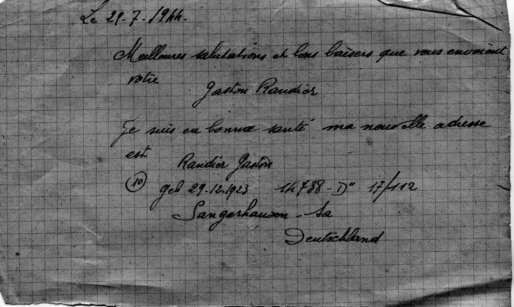 Le 29-7-1944.
Meilleures salutations et bons baisers que vous envoient
votre
Gaston Raudier
Je suis en bonne santé ma nouvelle adresse
est
Raudier Gaston
10 geb 29.12.1923 14788-D" 17/112
Sangerhausen - Sa
Deutschland